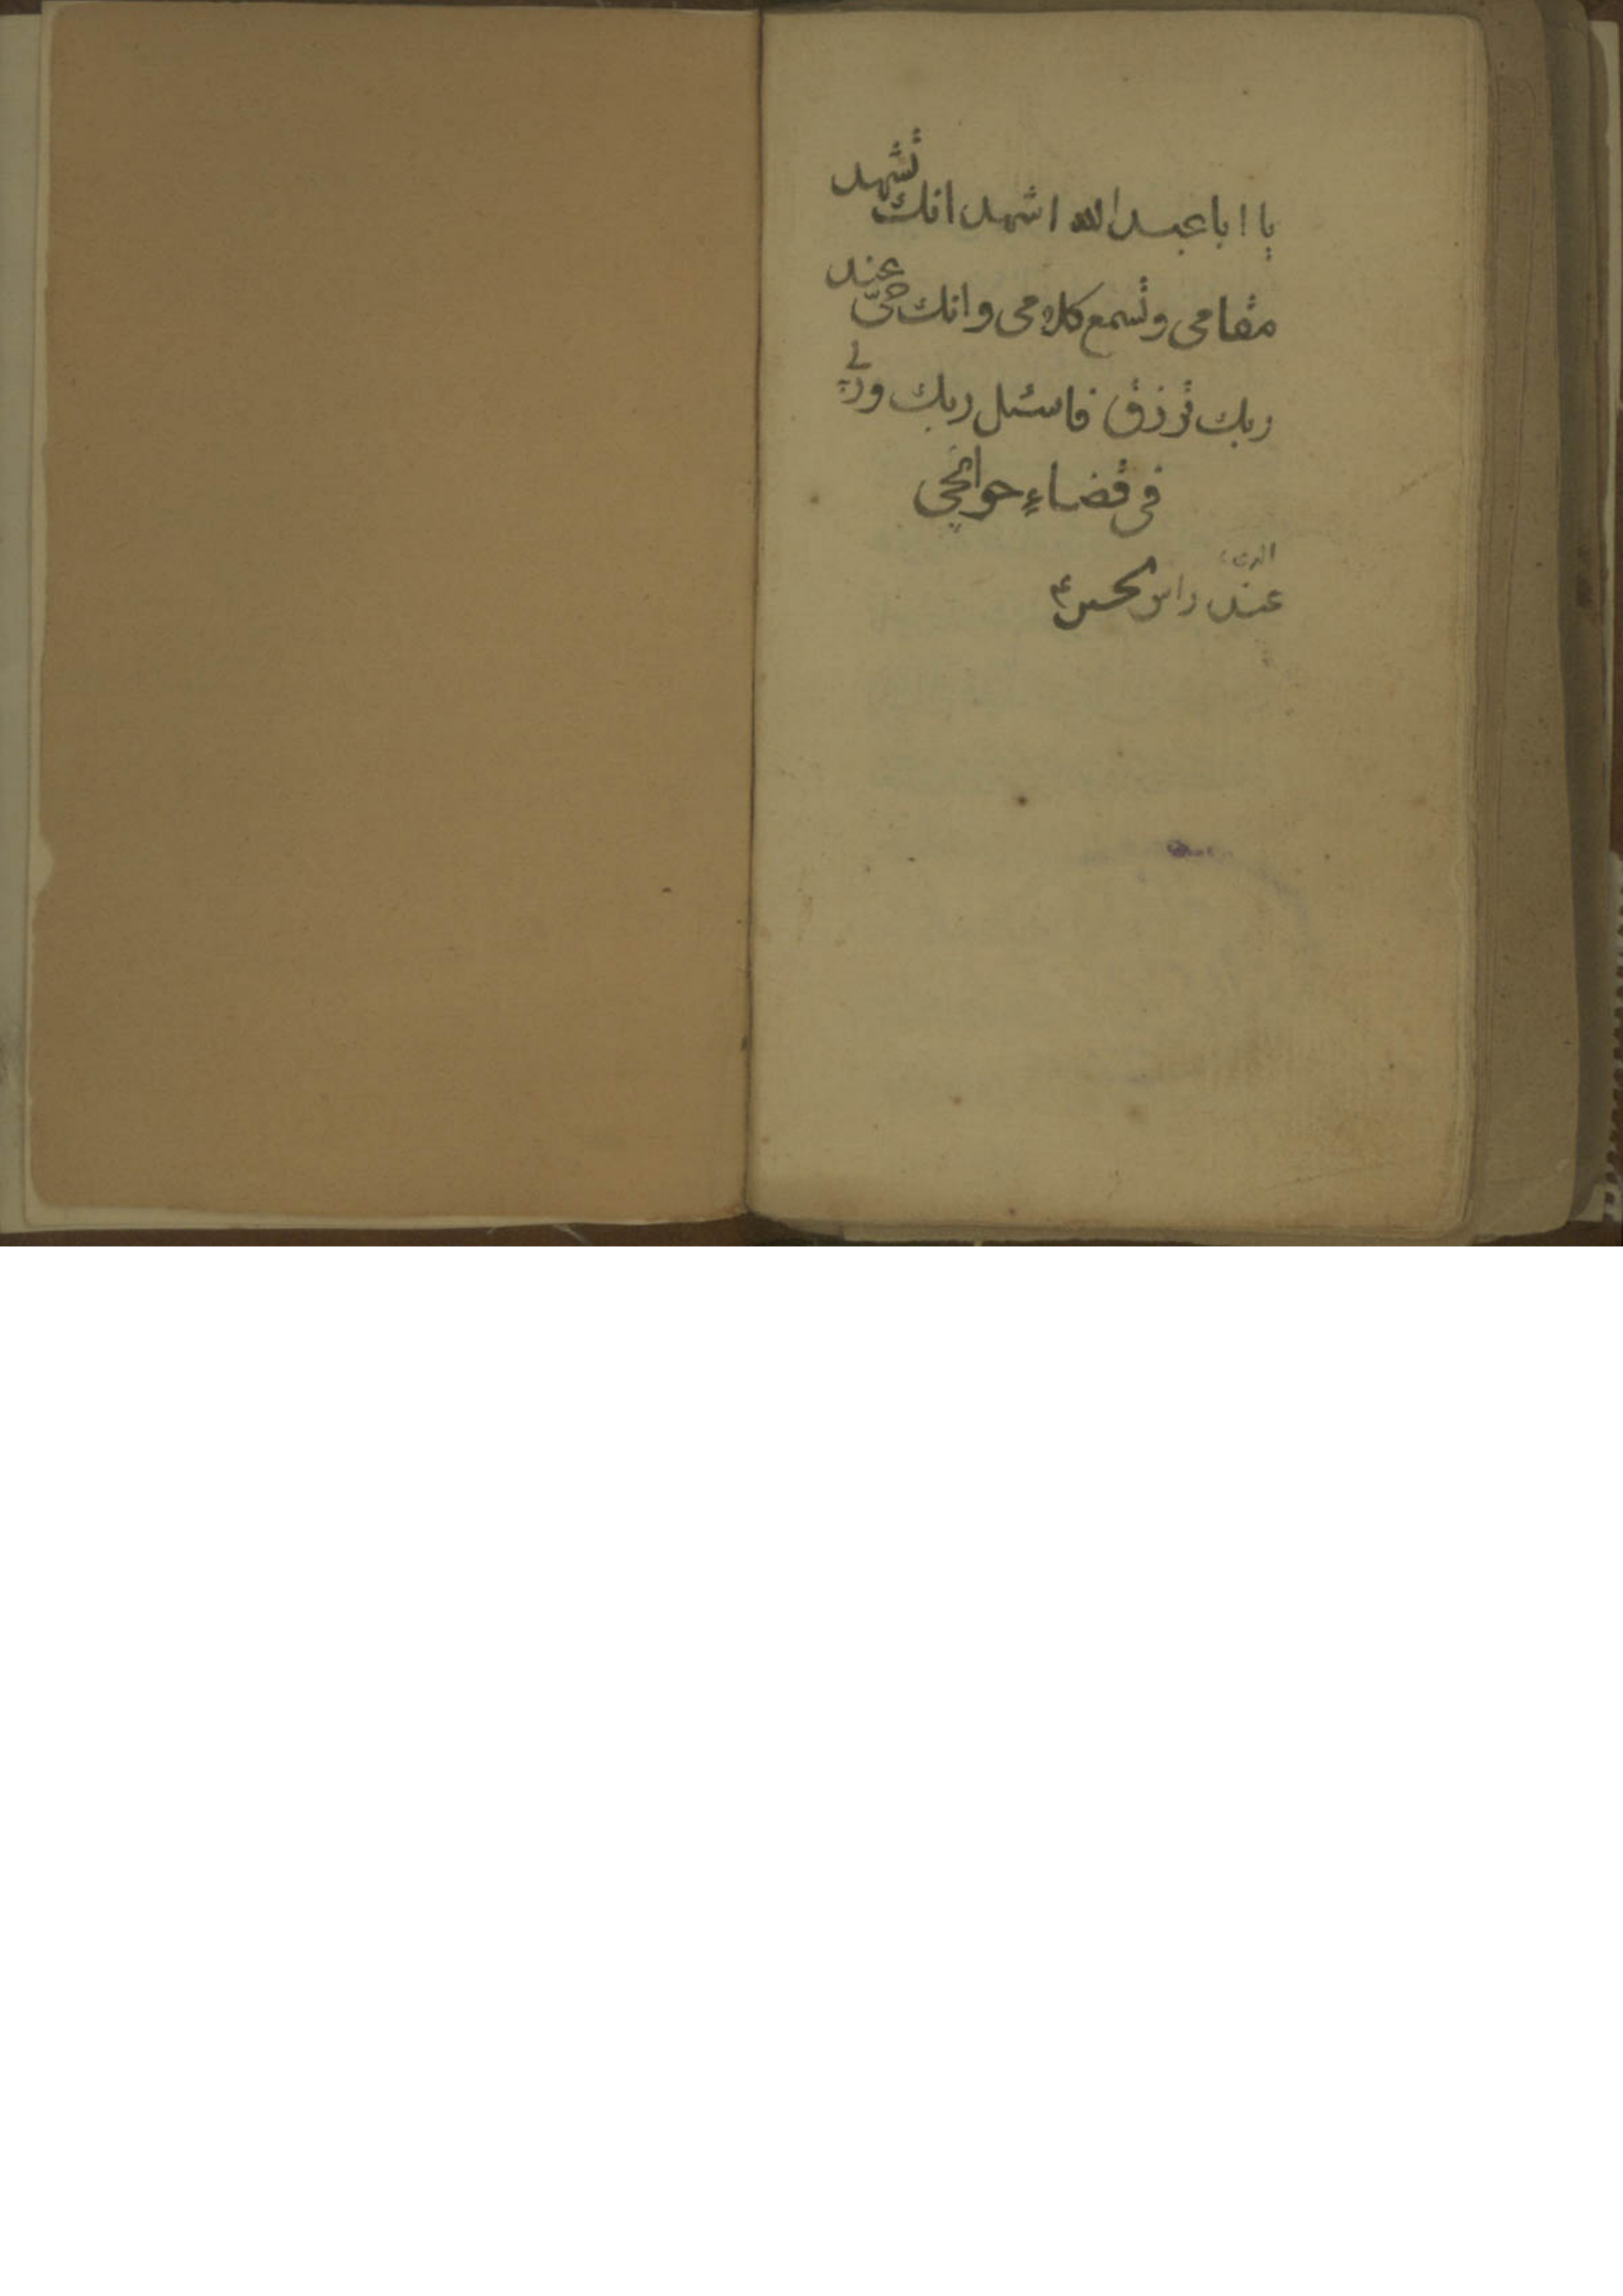 يا ابا عبد الله اشهد انك تشهد
مقامى وتسمع كلامى وانك حىّ عند
ربك ترزق فاسئل ربك وربى
فى قضاء حوائجي
عند راس الحسين ع